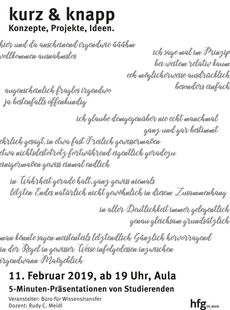 kurz & knapp
Konzepte, Projekte, Ideen.
hier und da anscheinend irgendwie ööähm
vollkommen ausnahmslos
ich sage mal im Prinzip
bei weitem relativ kaum
ich möglicherweise ausdrücklich
besonders einfach
augenscheinlich fraglos irgendwo
ja bestenfalls offenkundig
ich glaube demgegenüber nie echt manchmal
ganz und gar bestimmt
ehrlich gesagt, in etwa fast Freilich gewissermaßen
etwa nichtsdestotrotz fortwährend eigentlich geradezu
einigermaßen gewiss einmal endlich
in Wahrheit gerade halt, ganz gewiss niemals
letzten Endes natürlich nicht gewöhnlich in diesem Zusammenhang
in aller Deutlichkeit immer gelegentlich
genau gleichsam grundsätzlich
man könnte sagen meistenteils letztendlich Gänzlich hervorragend
in der Regel in gewisser Weise infolgedessen inzwischen
irgendwann Maßgeblich
11. Februar 2019, ab 19 Uhr, Aula
5-Minuten-Präsentationen von Studierenden
Veranstalter: Büro für Wissenstransfer
Dozent: Rudy C. Meidl
hfg